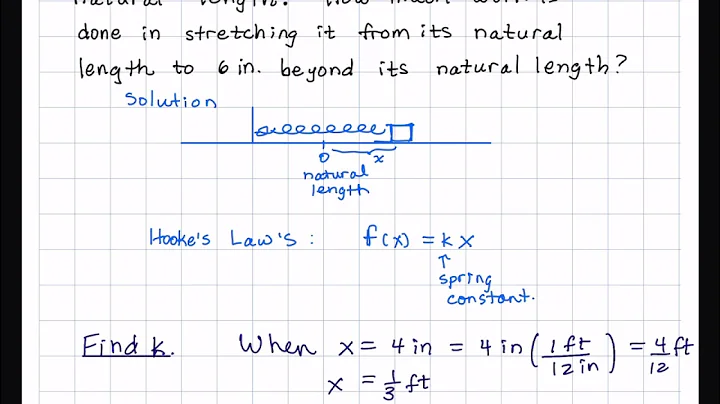 natural length? How much work is
done in stretching it from its natural
length to 6 in. beyond its natural length?
Solution
0 x
natural
length
Hooke's Law's : f(x) = k x
↑
spring
constant.
Find k. When x = 4 in = 4 in (1 ft / 12 in) = 4/12 ft
x = 1/3 ft